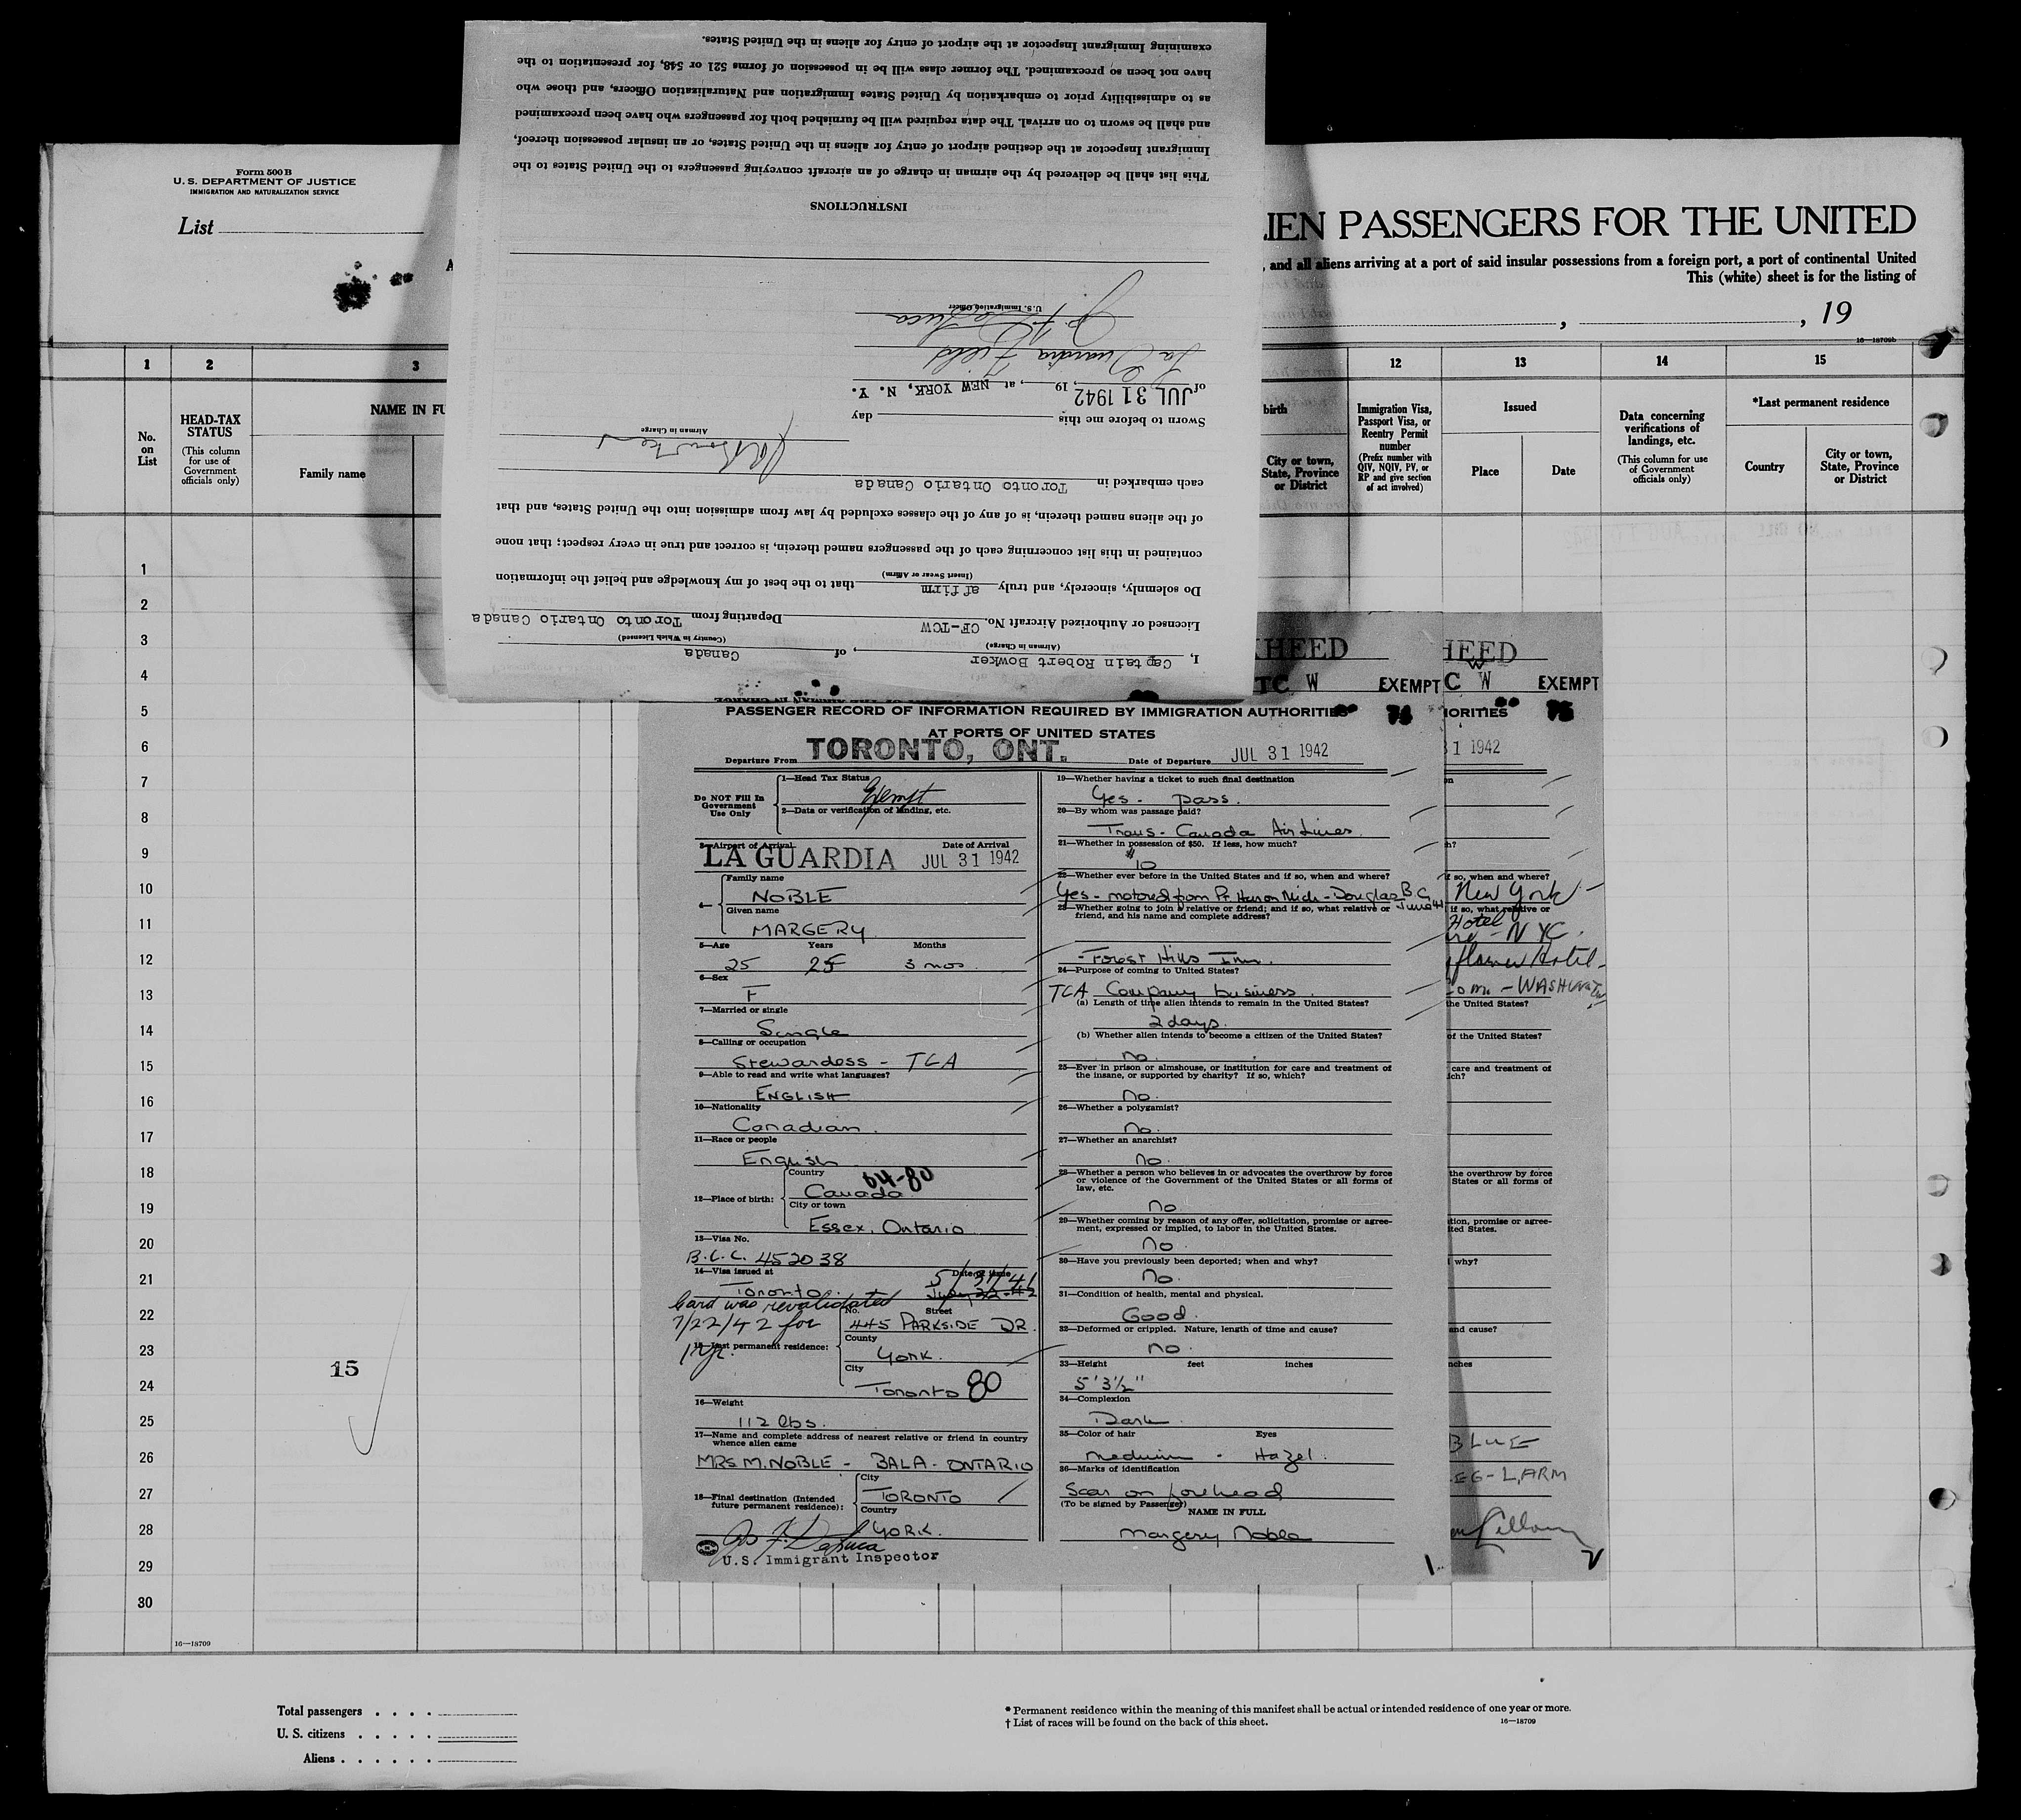 examining Immigrant Inspector at the airport of entry for aliens in the United States.
have not been so preexamined. The former class will be in possession of forms 521 or 548, for presentation to the
as to admissibility prior to embarkation by United States Immigration and Naturalization Officers, and those who
and shall be sworn to on arrival. The data required will be furnished both for passengers who have been preexamined
Immigrant Inspector at the destined airport of entry for aliens in the United States, or an insular possession thereof,
This list shall be delivered by the airman in charge of an aircraft conveying passengers to the United States to the
INSTRUCTIONS
U.S. Immigration Officer
La Guardia Field
of JUL 31 1942, 19 , at NEW YORK, N. Y.
Sworn to before me this day
Airman in Charge
each embarked in Toronto Ontario Canada
of the aliens named therein, is of any of the classes excluded by law from admission into the United States, and that
contained in this list concerning each of the passengers named therein, is correct and true in every respect; that none
(Insert Swear or Affirm)
Do solemnly, sincerely, and truly affirm that to the best of my knowledge and belief the information
Licensed or Authorized Aircraft No. CF-TCW Departing from Toronto Ontario Canada
(Airman in Charge) (Country in Which Licensed)
I, Captain Robert Bowker, of Canada
Form 500 B
U. S. DEPARTMENT OF JUSTICE
IMMIGRATION AND NATURALIZATION SERVICE
List
LIEN PASSENGERS FOR THE UNITED
, and all aliens arriving at a port of said insular possessions from a foreign port, a port of continental United
This (white) sheet is for the listing of
, , 19
16—18709b
1 2 3 12 13 14 15
No. on List
HEAD-TAX STATUS
(This column for use of Government officials only)
NAME IN FU
Family name
birth
City or town, State, Province or District
Immigration Visa, Passport Visa, or Reentry Permit number
(Prefix number with QIV, NQIV, PV, or RP and give section of act involved)
Issued
Place Date
Data concerning verifications of landings, etc.
(This column for use of Government officials only)
*Last permanent residence
Country
City or town, State, Province or District
1
2
3
4
5
6
7
8
9
10
11
12
13
14
15
16
17
18
19
20
21
22
23
24
25
26
27
28
29
30
15
16—18709
KHEED
TC W EXEMPT
PASSENGER RECORD OF INFORMATION REQUIRED BY IMMIGRATION AUTHORITIES
AT PORTS OF UNITED STATES
Departure From TORONTO, ONT. Date of Departure JUL 31 1942
Do NOT Fill In Government Use Only
1—Head Tax Status
Exempt
2—Data or verification of landing, etc.
3—Airport of Arrival Date of Arrival
LA GUARDIA JUL 31 1942
4— Family name
NOBLE
Given name
MARGERY
5—Age Years Months
25 25 3 mos.
6—Sex
F
7—Married or single
Single
8—Calling or occupation
Stewardess - TCA
9—Able to read and write what languages?
ENGLISH
10—Nationality
Canadian.
11—Race or people
English
12—Place of birth: Country
64-80
Canada
City or town
Essex, Ontario
13—Visa No.
B.C.C. 452038
14—Visa issued at Date of Issue
Toronto. 5/31/41
Card was revalidated
7/22/42 for
1 yr.
15—Last permanent residence:
No. Street
445 PARKSIDE DR.
County
York.
City
Toronto 80
16—Weight
112 lbs.
17—Name and complete address of nearest relative or friend in country
whence alien came
MRS M. NOBLE - BALA - ONTARIO
18—Final destination (Intended future permanent residence):
City
TORONTO
Country
YORK.
U.S. Immigrant Inspector
19—Whether having a ticket to such final destination
Yes - pass.
20—By whom was passage paid?
Trans-Canada Air Lines.
21—Whether in possession of $50. If less, how much?
$10
22—Whether ever before in the United States and if so, when and where?
Yes - motored from Pt Huron Mich - Douglas B.C. June 41
23—Whether going to join a relative or friend; and if so, what relative or
friend, and his name and complete address?
- Forest Hills Inn.
24—Purpose of coming to United States?
TCA Company business.
(a) Length of time alien intends to remain in the United States?
2 days.
(b) Whether alien intends to become a citizen of the United States?
no.
25—Ever in prison or almshouse, or institution for care and treatment of
the insane, or supported by charity? If so, which?
no.
26—Whether a polygamist?
no.
27—Whether an anarchist?
no.
28—Whether a person who believes in or advocates the overthrow by force
or violence of the Government of the United States or all forms of
law, etc.
no
29—Whether coming by reason of any offer, solicitation, promise or agree-
ment, expressed or implied, to labor in the United States.
no.
30—Have you previously been deported; when and why?
no.
31—Condition of health, mental and physical.
Good.
32—Deformed or crippled. Nature, length of time and cause?
no.
33—Height feet inches
5'3½"
34—Complexion
Dark.
35—Color of hair Eyes
medium - Hazel.
36—Marks of identification
Scar on forehead
(To be signed by Passenger)
NAME IN FULL
Margery Noble
HEED
C W EXEMPT
IORITIES 75
31 1942
on
h?
if so, when and where?
New York
if so, what relative or
Hotel
- NYC.
Hotel -
- WASHINGTON
the United States?
of the United States?
care and treatment of
ich?
the overthrow by force
States or all forms of
tion, promise or agree-
ited States.
why?
and cause?
nches
BLUE
LEG - L. ARM
Total passengers
U. S. citizens
Aliens
* Permanent residence within the meaning of this manifest shall be actual or intended residence of one year or more.
† List of races will be found on the back of this sheet. 16—18709